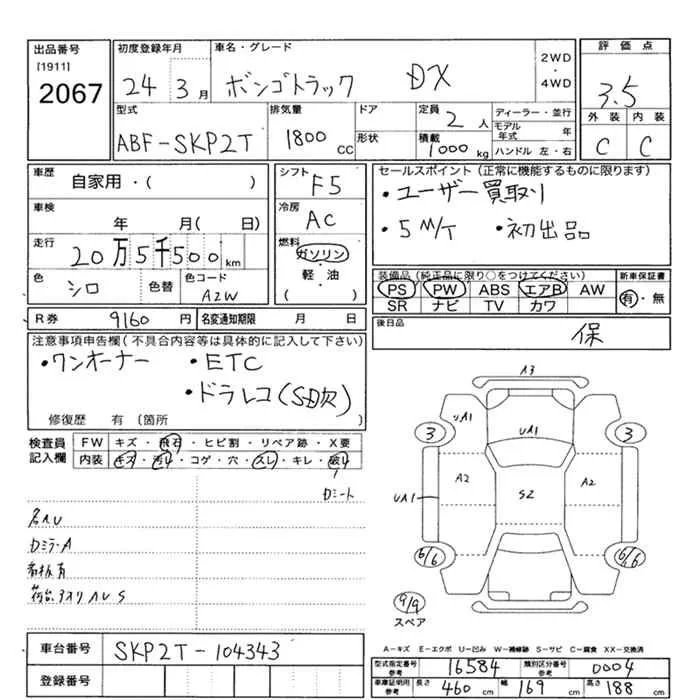 出品番号
[1911]
2067
初度登録年月
24 3月
車名・グレード
ボンゴトラック DX
2WD
・
4WD
評価点
3.5
外装 内装
C C
型式
ABF-SKP2T
排気量
1800 CC
ドア
形状
定員
2人
積載
1000 kg
ディーラー・並行
モデル年式 年
ハンドル 左・右
車歴
自家用・( )
シフト
F5
セールスポイント(正常に機能するものに限ります)
・ユーザー買取り
・5 M/T ・初出品
車検
年 月( 日)
冷房
AC
走行
20万5千500km
燃料
ガソリン
・
軽・油
( )
色
シロ
色替
色コード
A2W
装備品(純正品に限り○をつけてください)
PS PW ABS エアB AW
SR ナビ TV カワ
新車保証書
有・無
R券 9160円
名変通知期限 月 日
後日品
保
注意事項申告欄(不具合内容等は具体的に記入して下さい)
・ワンオーナー ・ETC
・ドラレコ(S日欠)
修復歴 有 [箇所
検査員
記入欄
FW キズ・飛石・ヒビ割・リペア跡・X要
内装 キズ・汚れ・コゲ・穴・スレ・キレ・破れ
Dシート
DミラーA
看板有
A3
UA1
UA1
3
3
A2
A2
UA1
S2
6/6
6/6
9/9
スペア
車台番号
SKP2T-104343
登録番号
A-キズ E-エクボ U-凹み W-補修跡 S-サビ C-腐食 XX-交換済
型式指定番号
参考
16584
類別区分番号
参考
0004
車庫証明用
参考
長さ 460 cm
幅 169 cm
高さ 188 cm